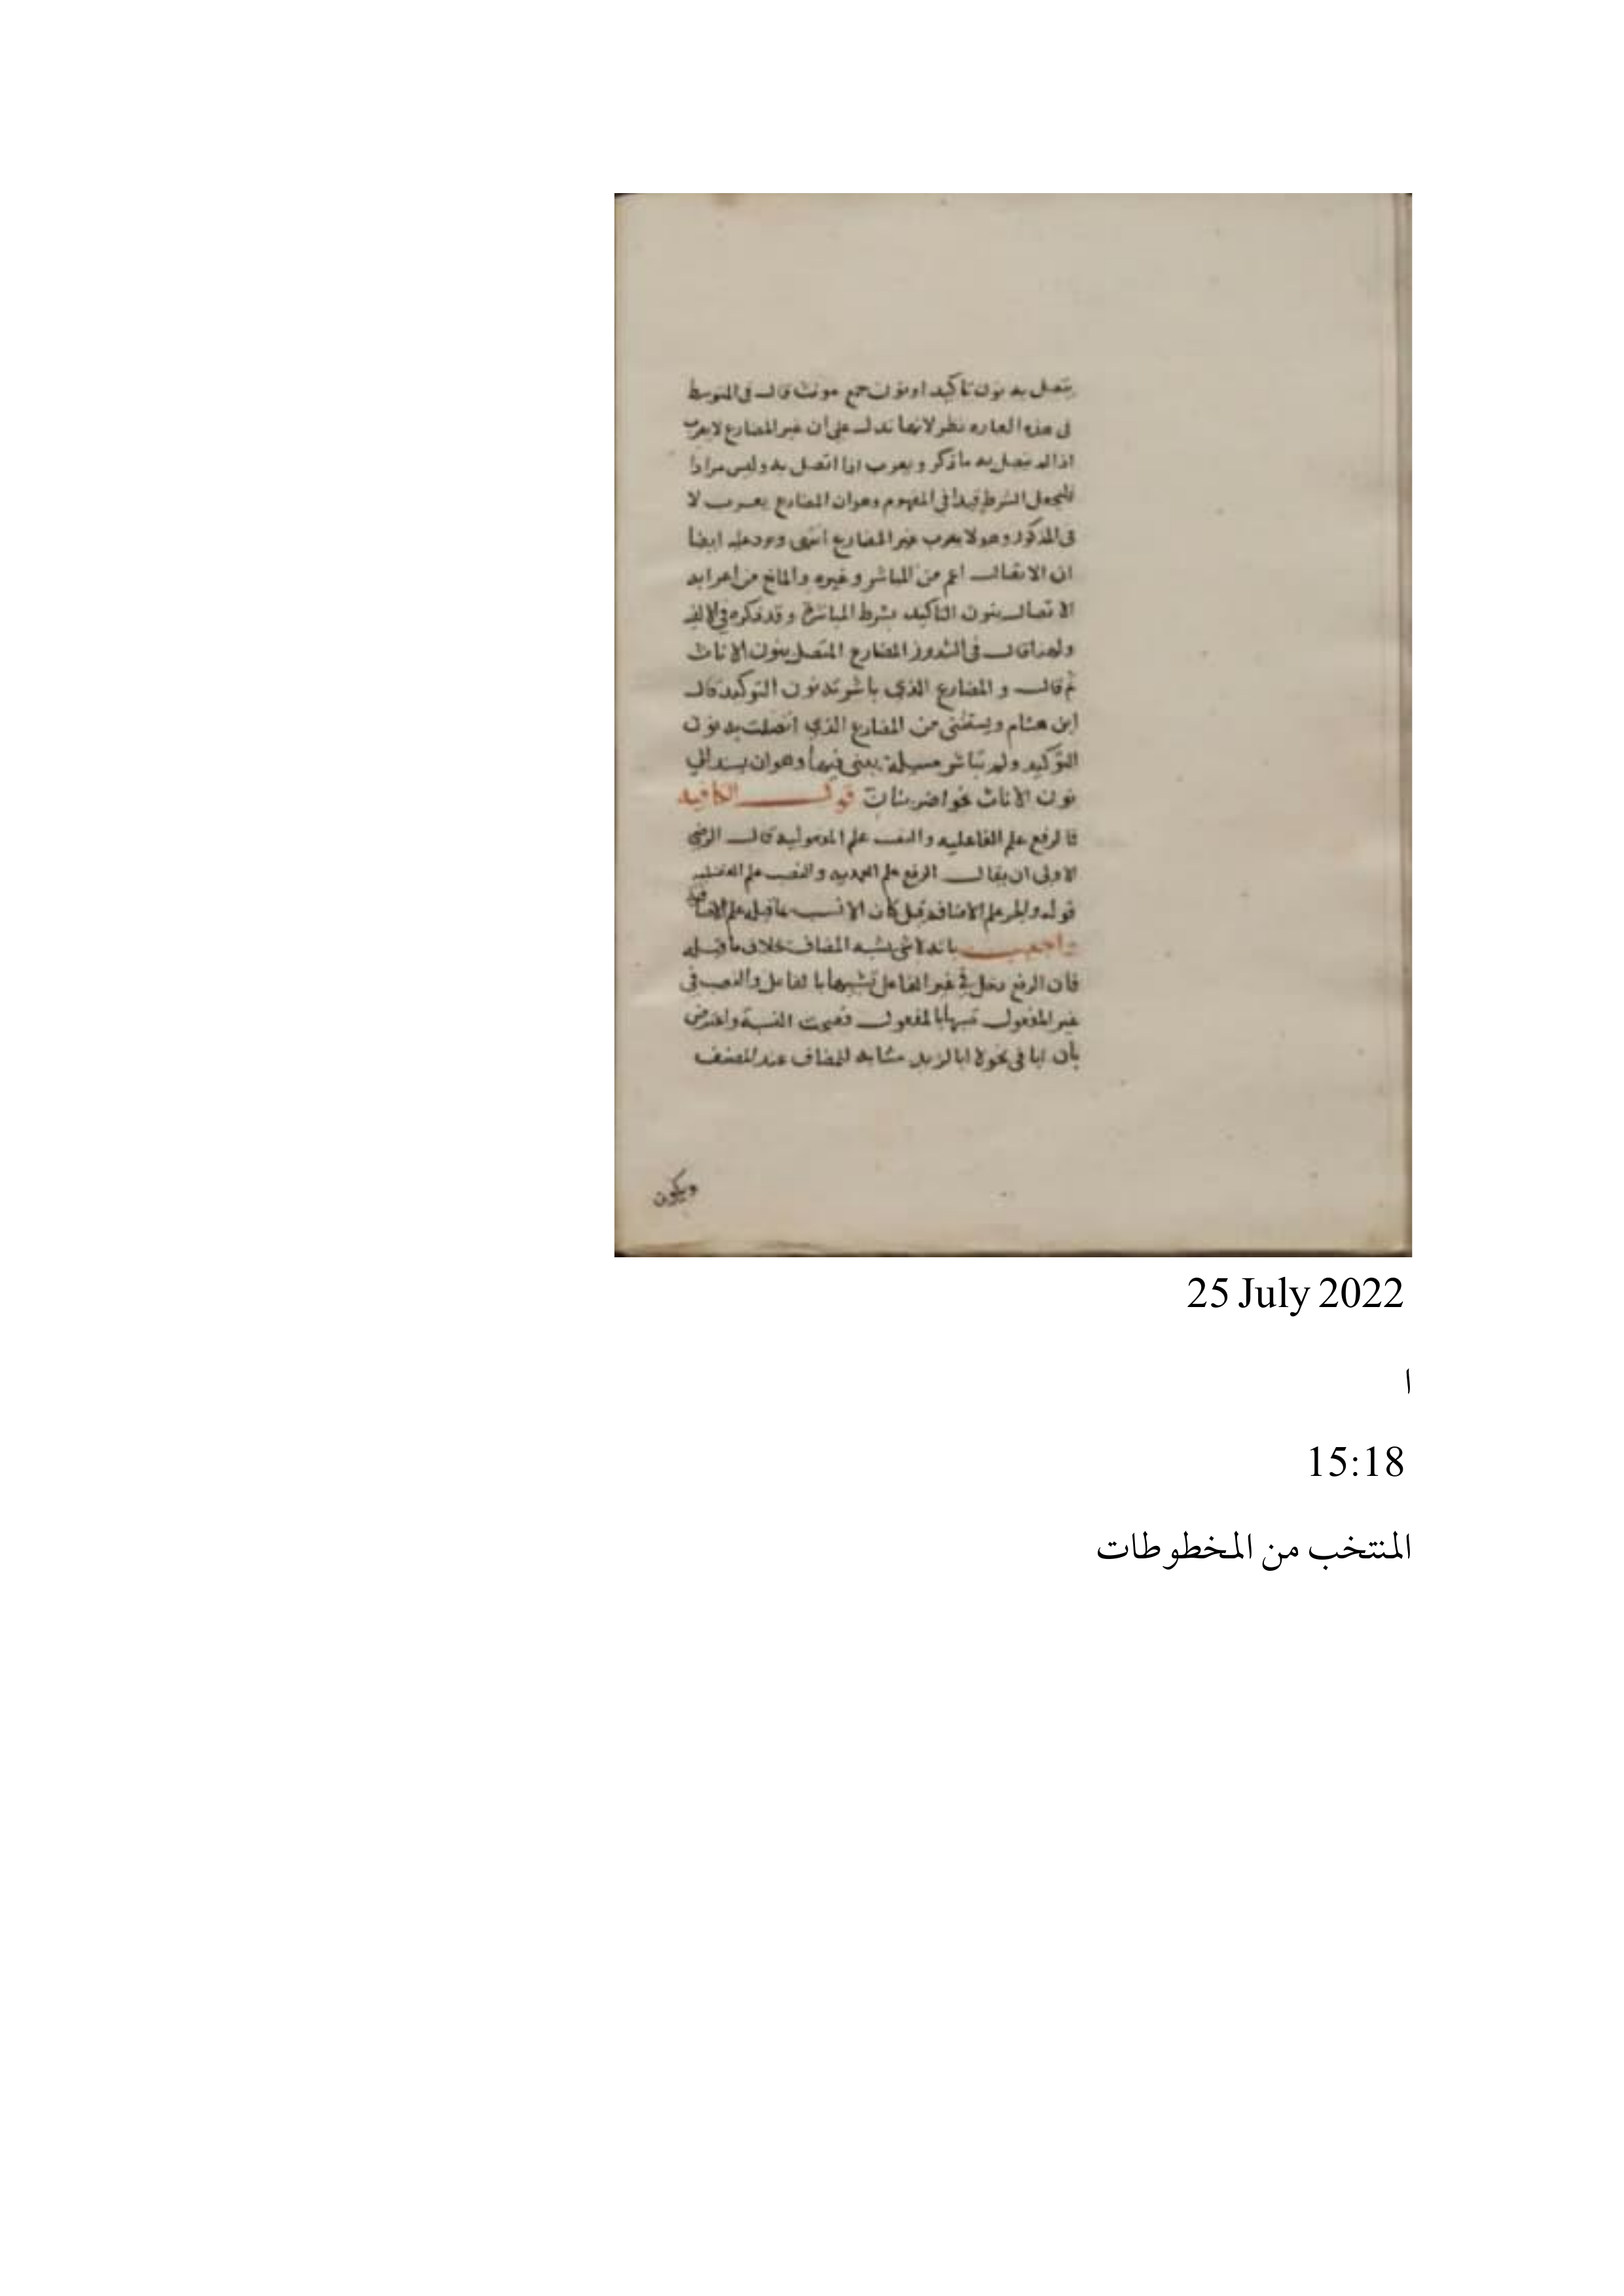 يتصل به نون تاكيد او نون جمع مونث قال في المتوسط
في هذه العباره نظر لانها تدل على ان غير المضارع لا يعرب
اذا لم يتصل به ما ذكر و يعرب اذا اتصل به وليس مرادا
الشرط قيدا في المفهوم وهو ان المضارع يعرب لا
في المذكور وهو لا يعرب غير المضارع انتهى ويرد عليه ايضا
ان الاتصال اعم من المباشر وغيره والمانع من اعرابه
الاتصال بنون التاكيد بشرط المباشرة وقد ذكره في الالفيه
ولهذا قال في الشذور المضارع المتصل بنون الاناث
ثم قال و المضارع الذي باشرته نون التوكيد قال
ابن هشام ويستثنى من المضارع الذي اتصلت به نون
التوكيد ولم تباشر مسيلة يبنى فيها وهو ان يسند الي
نون الاناث نحو اضربنان قول الكافيه
فالرفع علم الفاعليه والنصب علم المفعوليه قال الرضى
الاولى ان يقال الرفع علم العمديه والنصب علم الفضليه
قوله والجر علم الاضافه قيل كان الانسب بما قبله علم
واجيب بانه لا شى يشبه المضاف بخلاف ما قبله
فان الرفع دخل في غير الفاعل تشبيها بالفاعل والنصب في
غير المفعول تشبيها بالمفعول فصحت النسبة واعترض
بان ابا في نحو لا ابا لزيد مشابه للمضاف عند المصنف
ويكون
25 July 2022
ا
15:18
المنتخب من المخطوطات